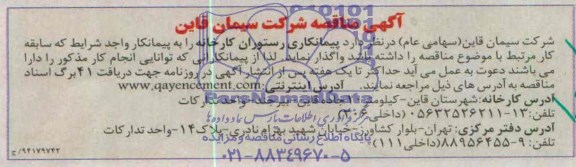 آگهی مناقصه شرکت سیمان قاین
شرکت سیمان قاین(سهامی عام) درنظر دارد پیمانکاری رستوران کارخانه را به پیمانکار واجد شرایط که سابقه
کار مرتبط با موضوع مناقصه را داشته باشد واگذار نماید. لذا از پیمانکارانی که توانایی انجام کار مذکور را دارا
می باشند دعوت به عمل می آید حداکثر تا یک هفته پس از انتشار آگهی در روزنامه جهت دریافت ۴۱برگ اسناد
مناقصه به آدرس های ذیل مراجعه نمایند. آدرس اینترنتی: www.qayencement.com
آدرس کارخانه:شهرستان قاین-کیلومتر واحد تدارکات
تلفن:۱۳-۰۵۶۳۲۵۲۶۲۱۱ (داخلی
آدرس دفتر مرکزی: تهران-بلوار کشاورز-خیابان شهید بهرام نادری-پلاک۱۴-واحد تدارکات
تلفن: ۹-۸۸۹۵۶۴۵۵(داخلی۱۱۱)
۹۴۱۷۹۷۴۲/ج
ParsNamadData
مرکز فرآوری اطلاعات پارس نماد داده ها
پایگاه اطلاع رسانی مناقصه و مزایده
۰۲۱-۸۸۳۴۹۶۷۰-۵